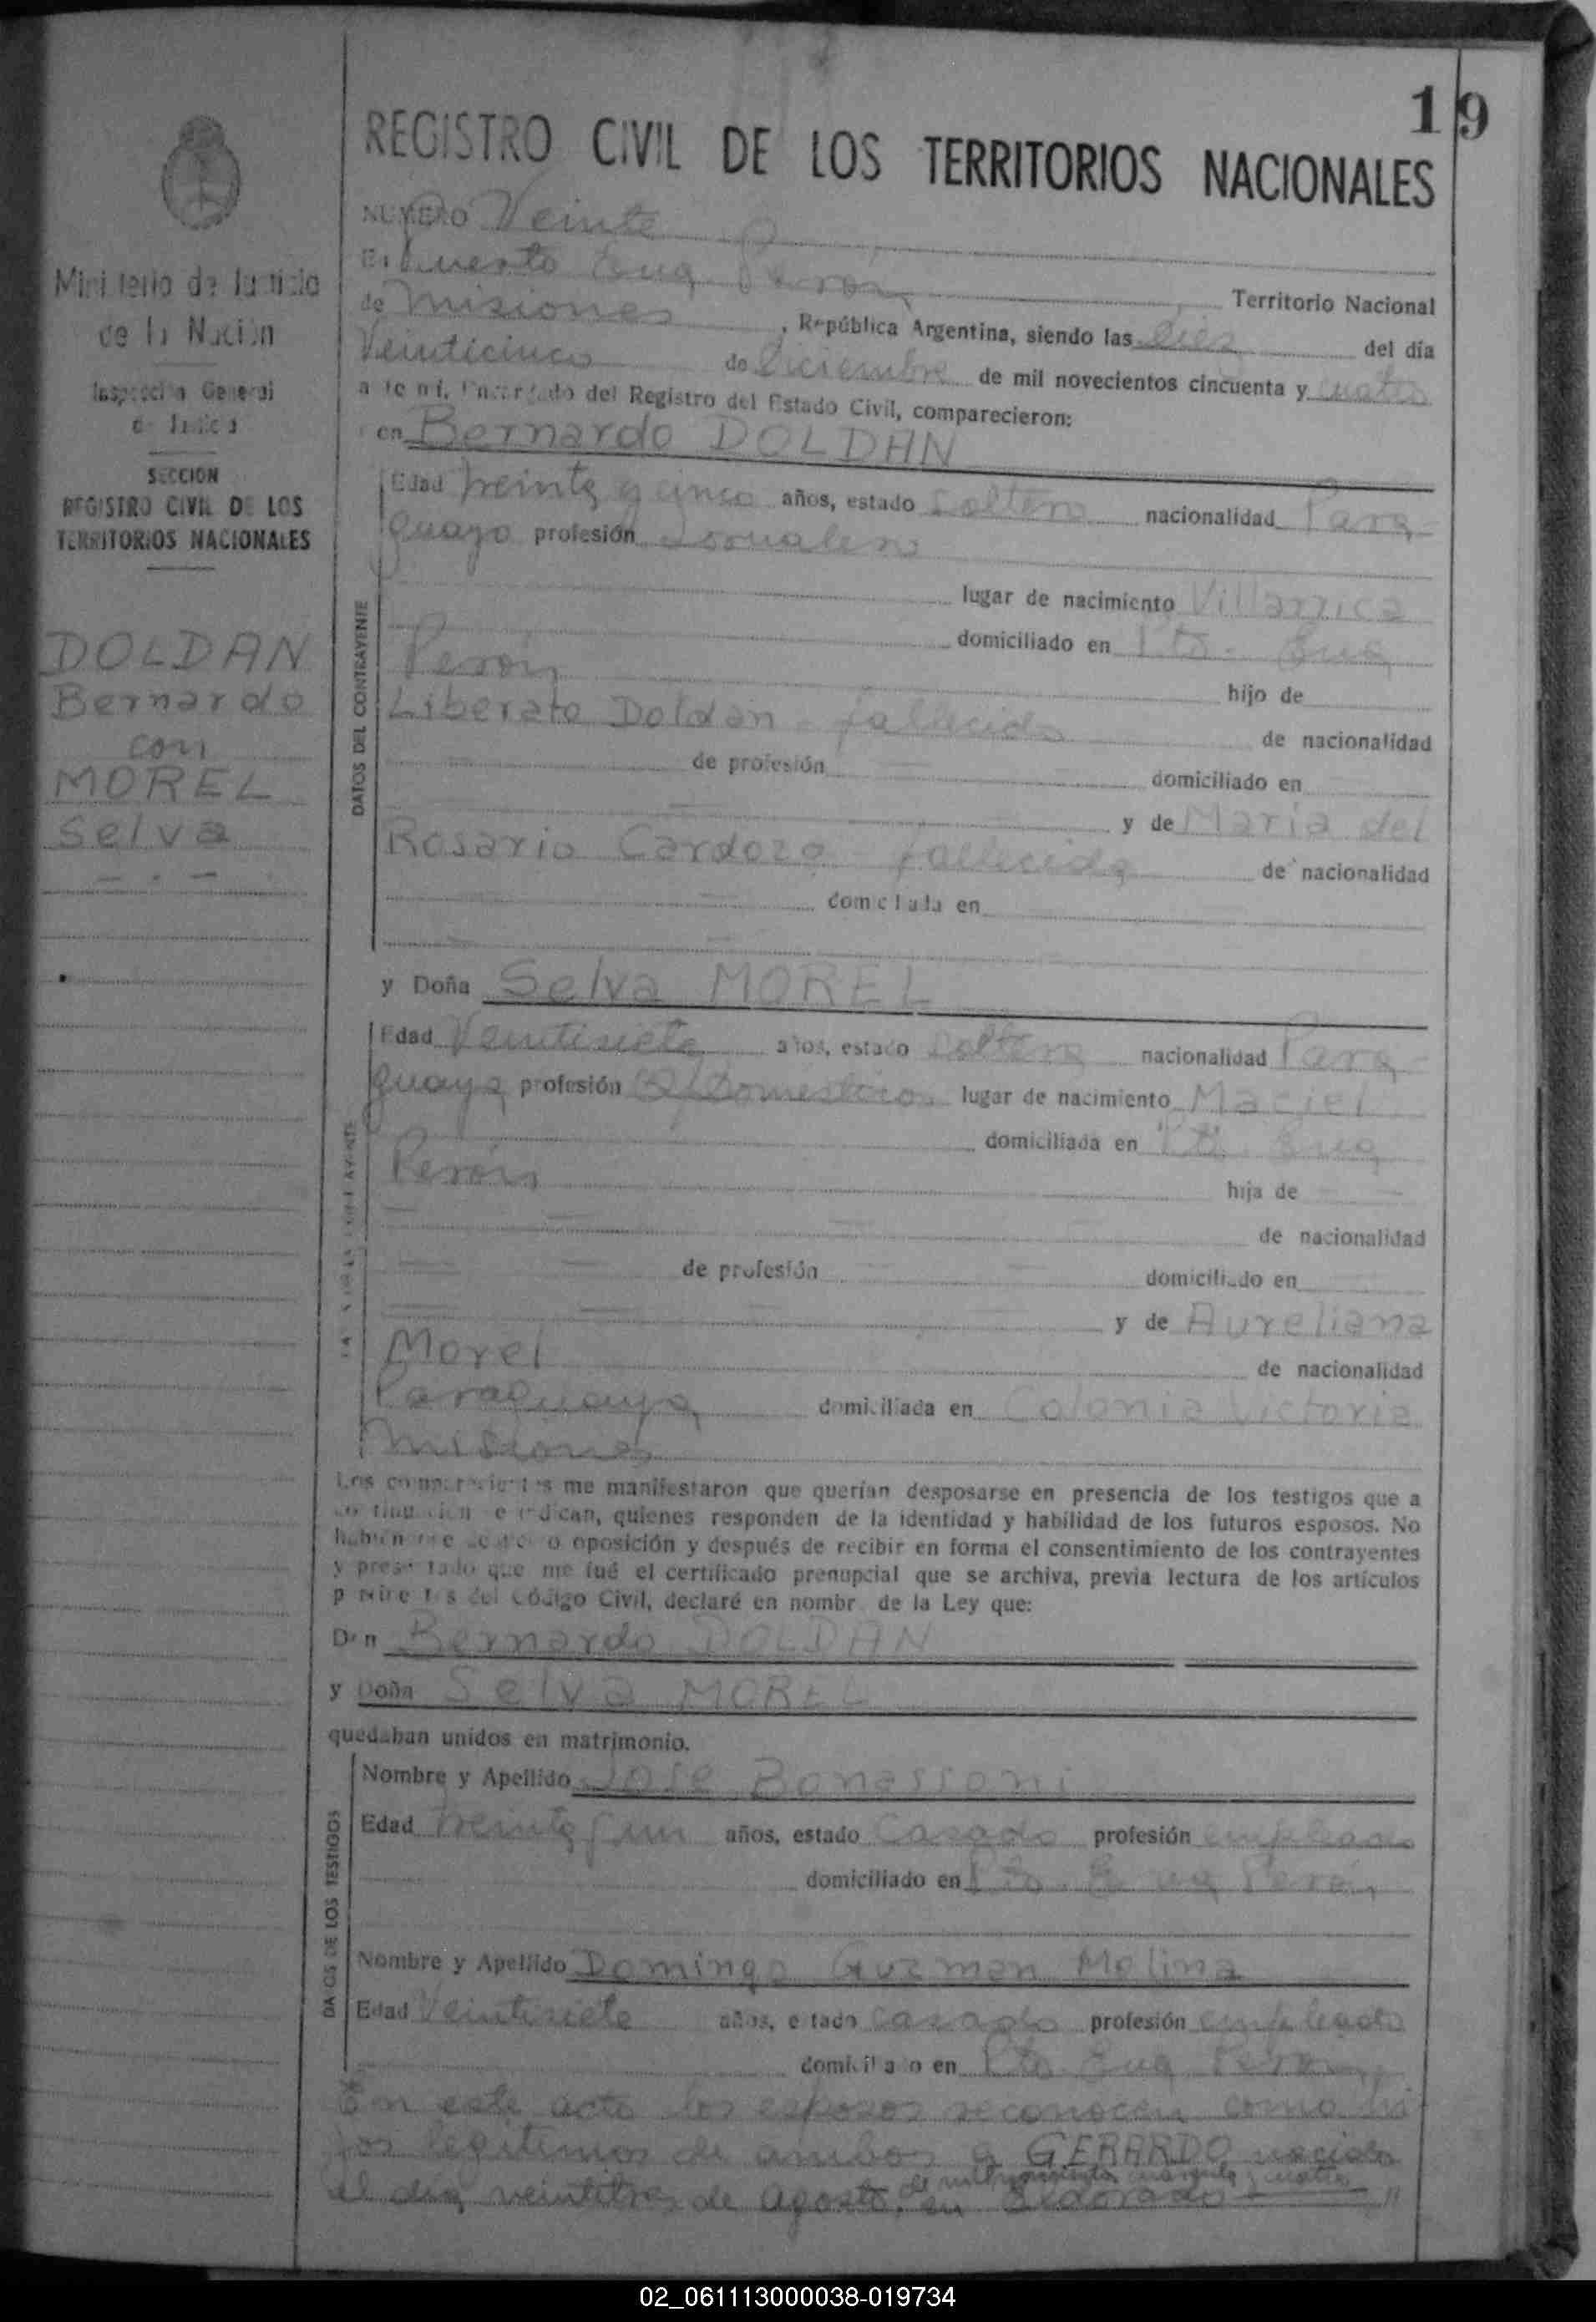 19
REGISTRO CIVIL DE LOS TERRITORIOS NACIONALES
Ministerio de Justicia
de la Nación
Inspección General
de Justicia
SECCION
REGISTRO CIVIL DE LOS
TERRITORIOS NACIONALES
DOLDAN
Bernardo
con
MOREL
Selva
NUMERO Veinte
En Puerto Eva Perón, Territorio Nacional
de Misiones, República Argentina, siendo las diez del día
Veinticinco de diciembre de mil novecientos cincuenta y cuatro
ante mí, Encargado del Registro del Estado Civil, comparecieron:
Don Bernardo DOLDAN
DATOS DEL CONTRAYENTE
Edad treinta y cinco años, estado soltero nacionalidad Para-
guayo profesión Jornalero
lugar de nacimiento Villarrica
domiciliado en Pto. Eva
Perón hijo de
Liberato Doldán - fallecido de nacionalidad
de profesión domiciliado en
y de María del
Rosario Cardozo fallecida de nacionalidad
domiciliada en
y Doña Selva MOREL
Edad Veintisiete años, estado soltera nacionalidad Para-
guaya profesión Q/Domésticos lugar de nacimiento Maciel
domiciliada en Pto. Eva
Perón hija de
de nacionalidad
de profesión domiciliado en
y de Aureliana
Morel de nacionalidad
Paraguaya domiciliada en Colonia Victoria
Misiones
Los comparecientes me manifestaron que querían desposarse en presencia de los testigos que a
continuación se indican, quienes responden de la identidad y habilidad de los futuros esposos. No
habiéndose deducido oposición y después de recibir en forma el consentimiento de los contrayentes
y presentado que me fué el certificado prenupcial que se archiva, previa lectura de los artículos
pertinentes del Código Civil, declaré en nombre de la Ley que:
Don Bernardo DOLDAN
y Doña Selva MOREL
quedaban unidos en matrimonio.
DATOS DE LOS TESTIGOS
Nombre y Apellido José Bonassoni
Edad treinta y un años, estado Casado profesión empleado
domiciliado en Pto. Eva Perón
Nombre y Apellido Domingo Guzman Molina
Edad Veintisiete años, estado casado profesión empleado
domiciliado en Pto. Eva Perón
En este acto los esposos reconocen como hi
jos legítimos de ambos a GERARDO nacido
el día veintitres de Agosto de mil novecientos cuarenta y cuatro en Eldorado
02_061113000038-019734